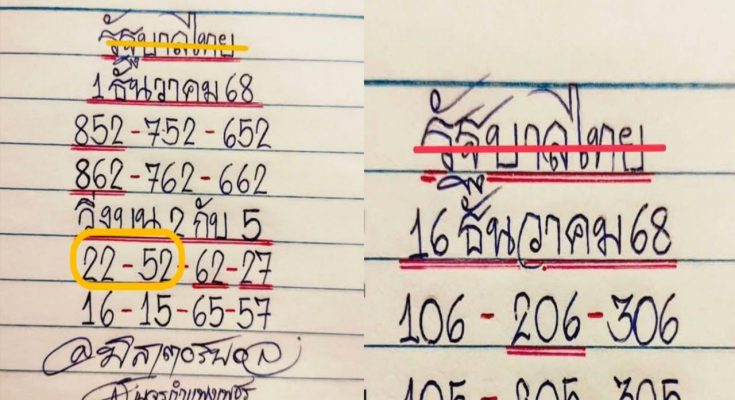 รัฐบาลไทย
1 ธันวาคม 68
852-752-652
862-762-662
วิ่งบน 2 กับ 5
22-52-62-27
16-15-65-57
รัฐบาลไทย
16 ธันวาคม 68
106-206-306
105-205-305